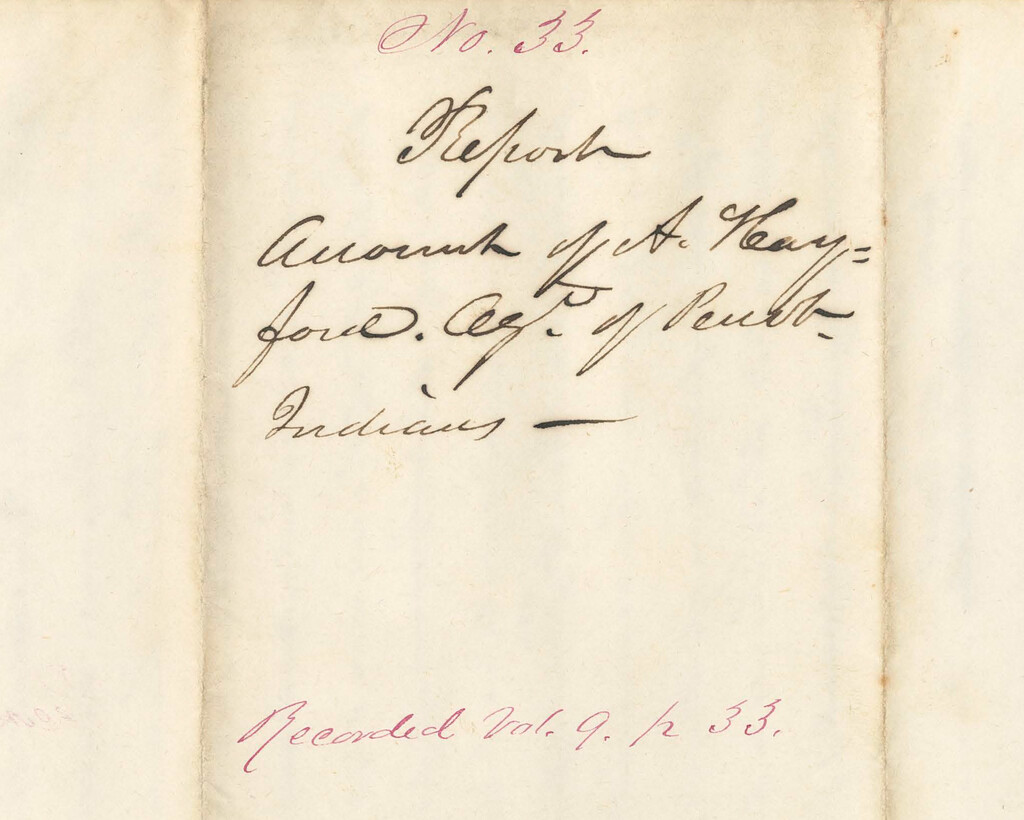 No. 33.
Report
Account of A. Hay=
ford. Agt. of Penobt.
Indians —
Recorded Vol. 9. p 33.